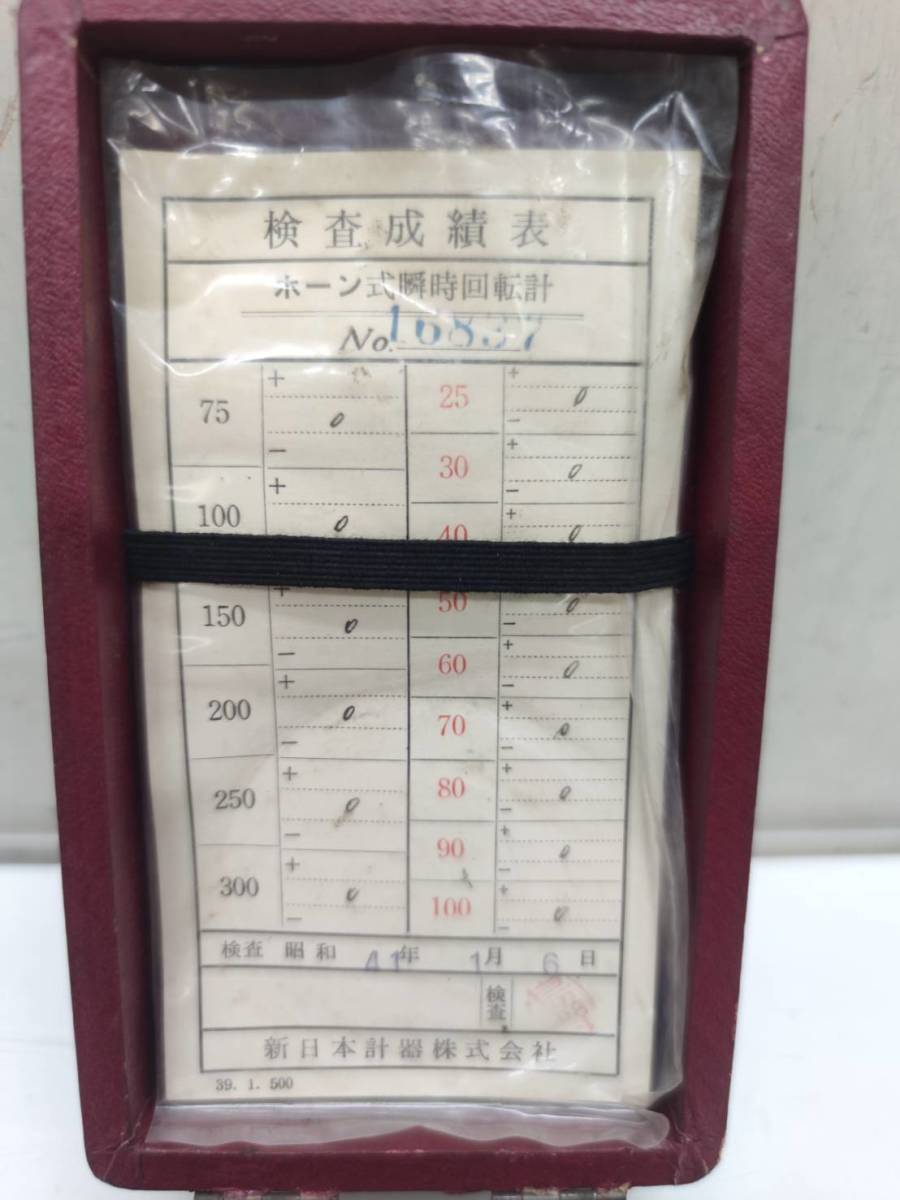 検査成績表
ホーン式瞬時回転計
No. 16837
75 + 0 - 25 + 0 -
30 + 0 -
100 + 0 40 + 0
150 + 0 - 50 0 -
60 + 0 -
200 + 0 - 70 + 0 -
250 + 0 - 80 + 0 -
90 + 0 -
300 + 0 - 100 + 0 -
検査 昭和 41年 1月 6日
検査
新日本計器株式会社
39. 1. 500